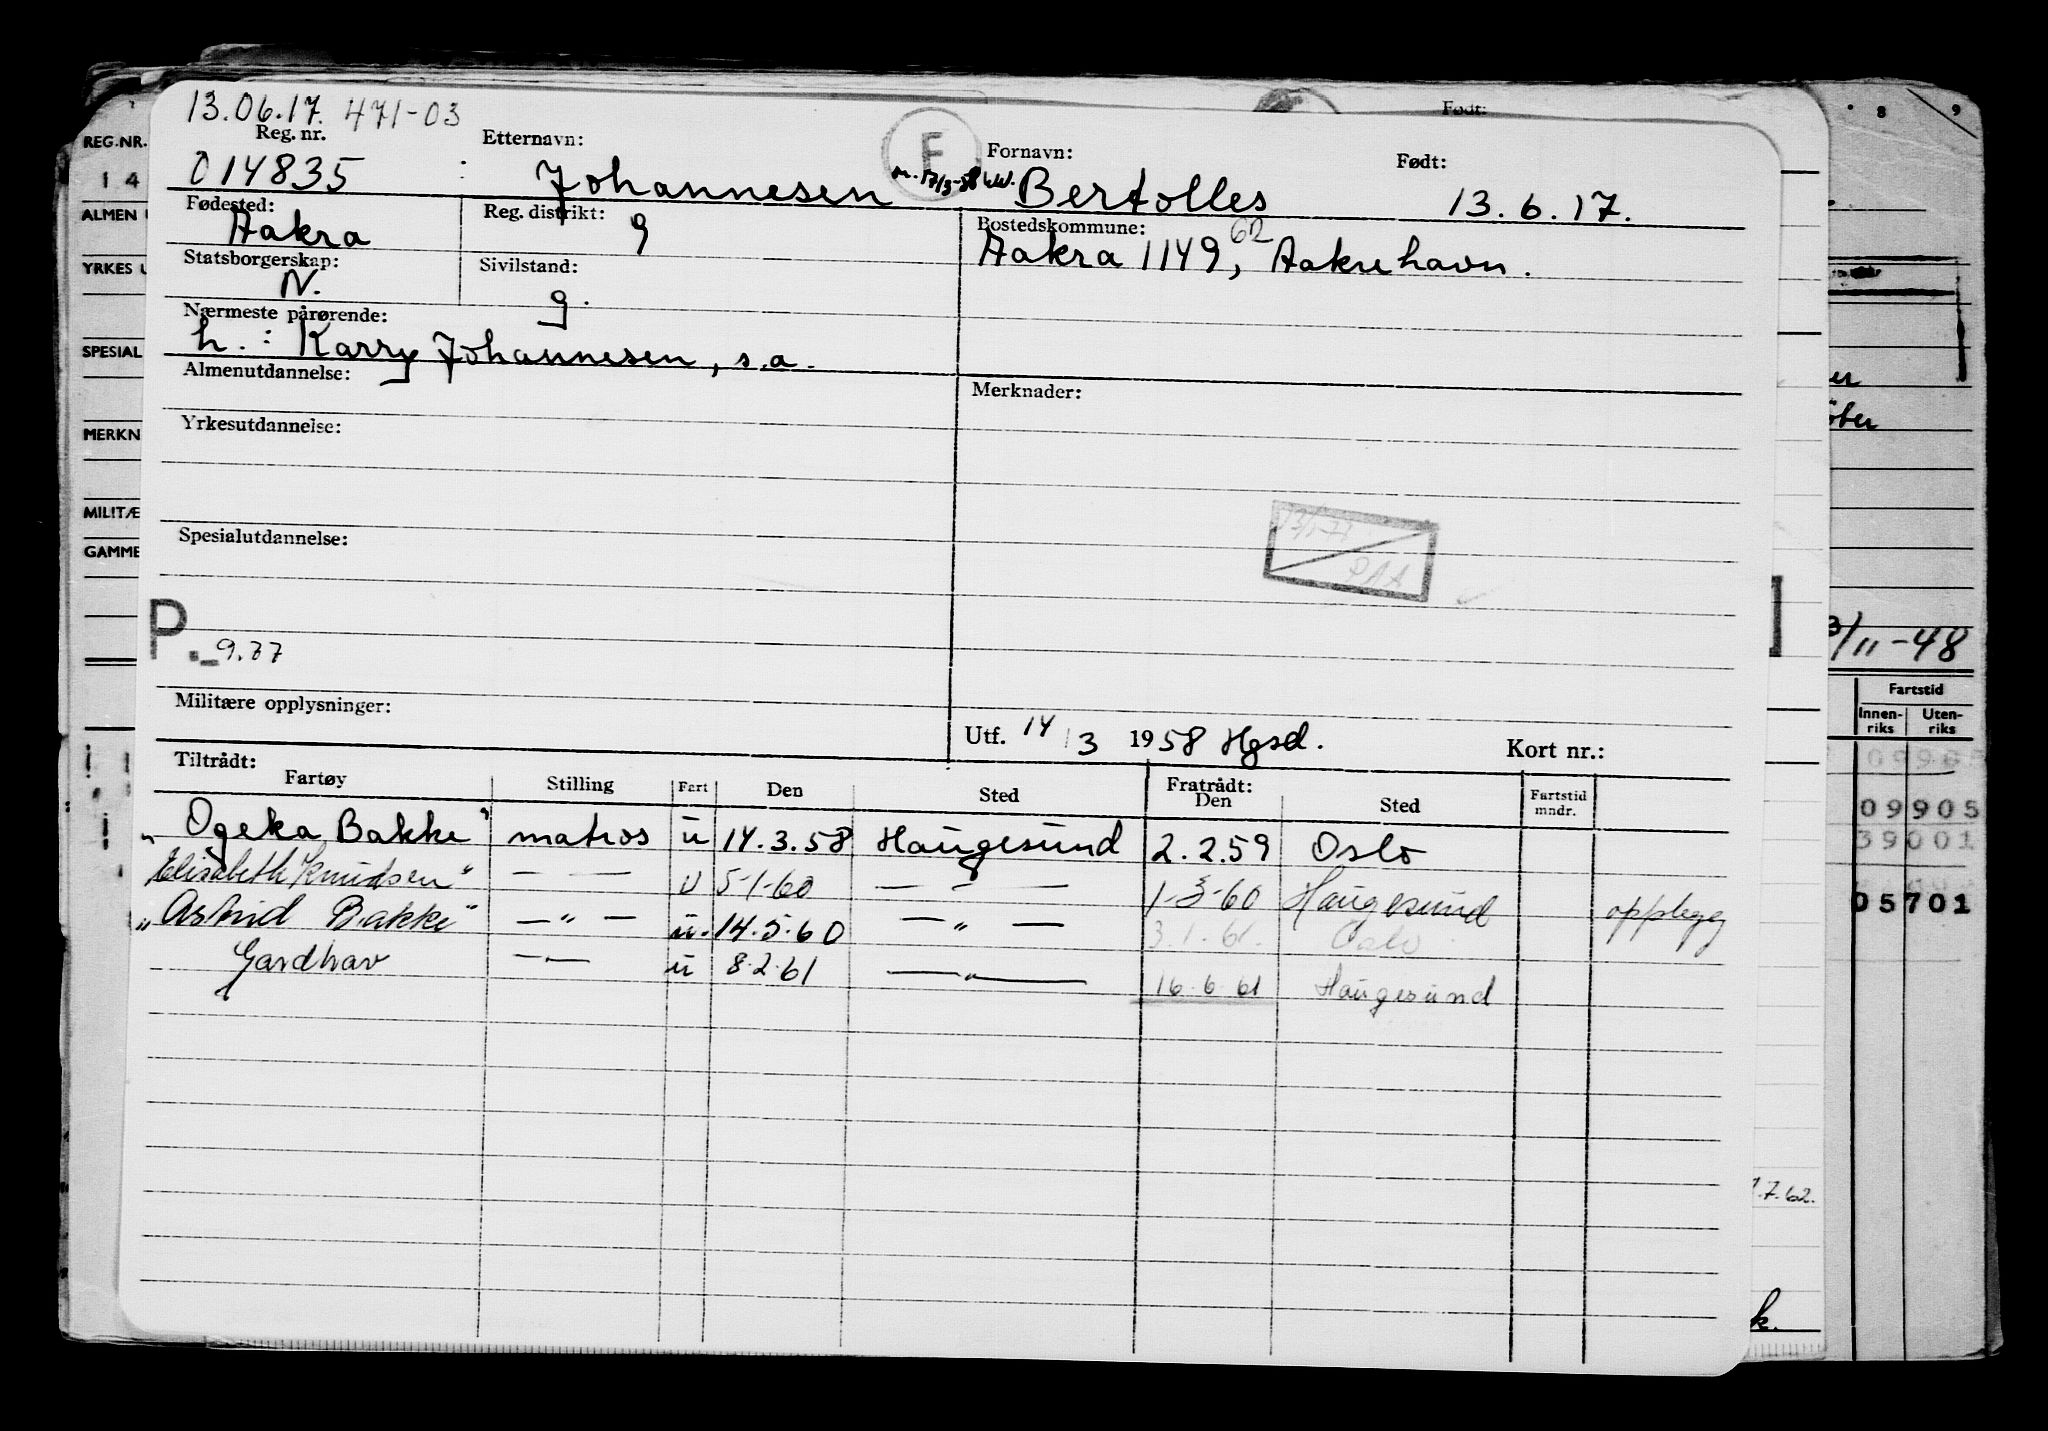 13.06.17. 471-03
Reg. nr. Etternavn: F Fornavn: Født: Født:
014835 Johannesen Bertolles 13.6.17.
Fødested: Reg. distrikt: Bostedskommune:
Aakra 9 Aakra 1149, 62 Aakrehavn.
Statsborgerskap: Sivilstand:
N. g.
Nærmeste pårørende:
h.: Karry Johannesen, s.a.
Almenutdannelse: Merknader:
Yrkesutdannelse:
Spesialutdannelse:
PAA
P. 9.77
Militære opplysninger:
Utf. 14/3 1958 Hgsd. Kort nr.:
Tiltrådt: Fratrådt:
Fartøy Stilling Fart Den Sted Den Sted Fartstid mndr.
"Ogeka Bakke" matros u 14.3.58 Haugesund 2.2.59 Oslo
Elisabeth Knudsen" — — u 5-1-60 — - — 1-3-60 Haugesund opplegg
"Astrid Bakke" —"— u. 14.5.60 —"— 3.1.61. Oslo
Gardhav —— u 8.2.61 —"— 16.6.61 Haugesund
REG.NR.
1 4
ALMEN
YRKES U
SPESIAL
MERKN
MILITÆ
GAMME
8 9
/11-48
Fartstid
Innen-riks Uten-riks
09905
09905
39001
05701
7.62.
k.